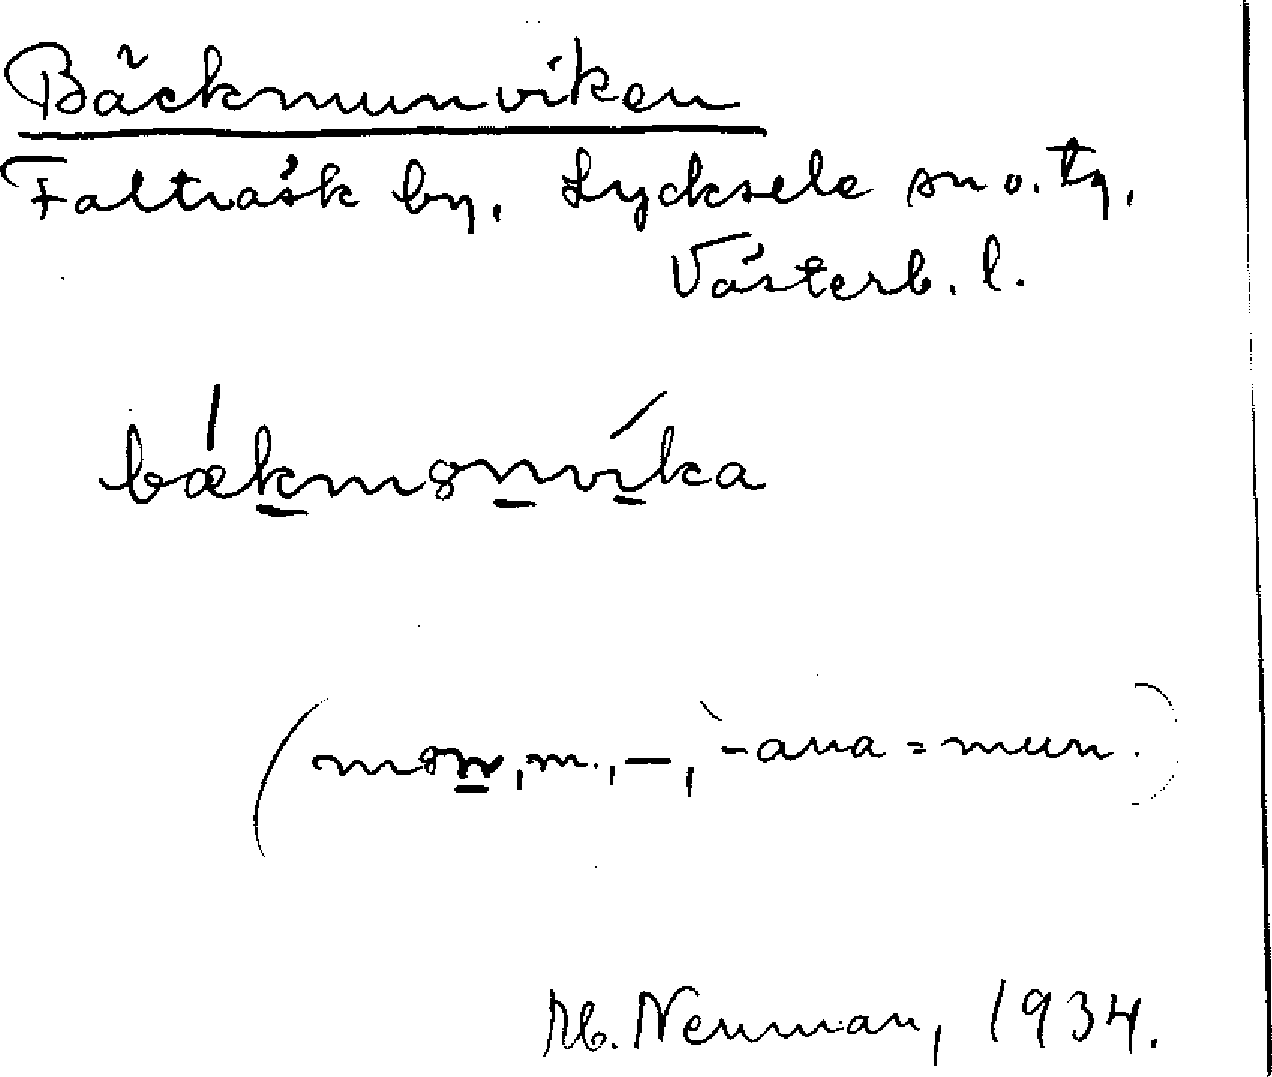 Bäckmunviken
Falträsk by, Lycksele sn o. tg,
Västerb. l.
bækmȣnvika
(mȣn, m., –, -ana = mun.)
Neuman, 1934.